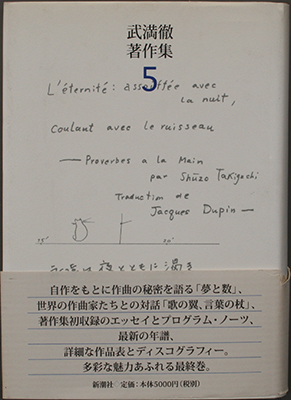 武満徹
著作集
5
L'éternité: assouffée avec
la nuit,
coulant avec le ruisseau
— Proverbes à la Main
par Shūzo Takiguchi
Traduction de
Jacques Dupin —
自作をもとに作曲の秘密を語る「夢と数」、
世界の作曲家たちとの対話「歌の翼、言葉の杖」、
著作集初収録のエッセイとプログラム・ノーツ、
最新の年譜、
詳細な作品表とディスコグラフィー。
多彩な魅力あふれる最終巻。
新潮社 定価:本体5000円(税別)